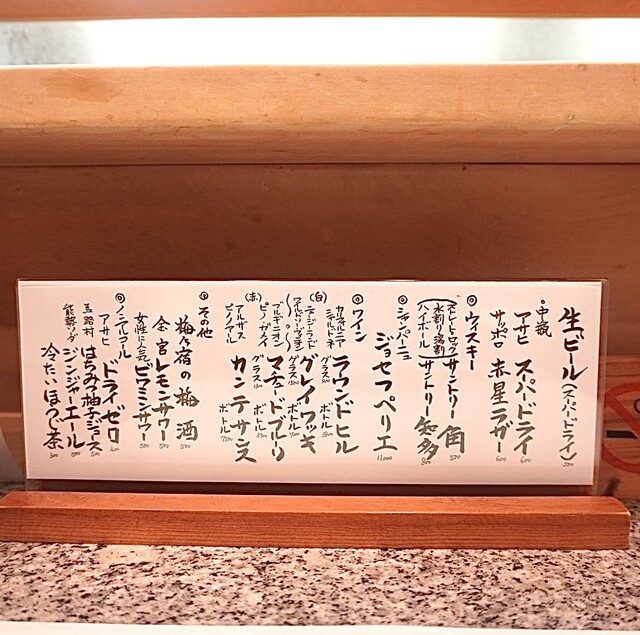 生ビール（スーパードライ）
・中瓶
アサヒ スーパードライ 600
サッポロ 赤星ラガー 600
◎ウィスキー
ストレート・ロック サントリー 角
水割り・ソーダ割
ハイボール サントリー 知多
◎シャンパーニュ
ジョセフペリエ 11,000
◎ワイン
カリフォルニア
シャルドネ ラウンドヒル
(白)
ニュージーランド
グレイワッキ
グラス ボトル
ブルギニオン
ピノ・グリ・メイ
グラス ボトル
(赤)
アルザス
ピノノアール カンテサンス
ボトル
◎その他
梅乃宿の梅酒
金宮レモンサワー
女性に人気ビワミンサワー
◎ノンアルコール
アサヒ ドライゼロ
馬路村 はちみつ柚子ジュース
能勢ソーダ ジンジャエール
冷たいほうじ茶